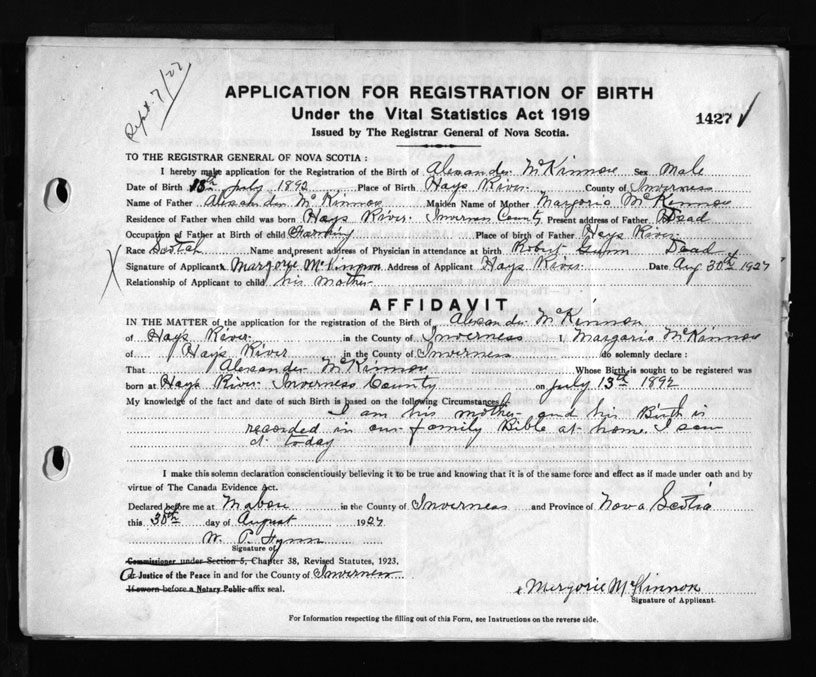 Sept. 7/27
APPLICATION FOR REGISTRATION OF BIRTH
Under the Vital Statistics Act 1919
1427
Issued by The Registrar General of Nova Scotia.
TO THE REGISTRAR GENERAL OF NOVA SCOTIA:
I hereby make application for the Registration of the Birth of Alexander McKinnon Sex Male
Date of Birth 13th July 1892 Place of Birth Hays River County of Inverness
Name of Father Alexander McKinnon Maiden Name of Mother Marjorie McKinnon
Residence of Father when child was born Hays River Inverness County Present address of Father Dead
Occupation of Father at Birth of child Farming Place of birth of Father Hays River
Race Scotch Name and present address of Physician in attendance at birth Robert Gunn Dead
X Signature of Applicant Margorie McKinnon Address of Applicant Hays River Date Aug 30th 1927
Relationship of Applicant to child his mother
AFFIDAVIT
IN THE MATTER of the application for the registration of the Birth of Alexander McKinnon
of Hays River in the County of Inverness I, Margarie McKinnon
of Hays River in the County of Inverness do solemnly declare:
That Alexander McKinnon Whose Birth is sought to be registered was
born at Hays River Inverness County on July 13th 1892
My knowledge of the fact and date of such Birth is based on the following Circumstances:
I am his mother and his Birth is
recorded in our family Bible at home. I saw
it today
I make this solemn declaration conscientiously believing it to be true and knowing that it is of the same force and effect as if made under oath and by
virtue of The Canada Evidence Act.
Declared before me at Mabou in the County of Inverness and Province of Nova Scotia
this 30th day of August 1927
W. P.
Signature of
Commissioner under Section 5, Chapter 38, Revised Statutes, 1923,
Or Justice of the Peace in and for the County of Inverness
If sworn before a Notary Public affix seal.
Mergorie McKinnon
Signature of Applicant.
For Information respecting the filling out of this Form, see Instructions on the reverse side.